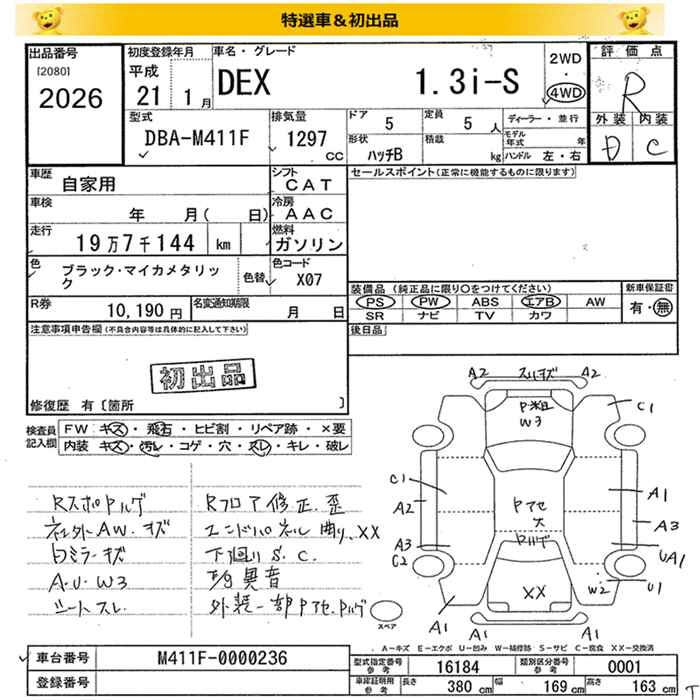 特選車＆初出品
出品番号
[2080]
2026
初度登録年月
平成
21 1月
車名・グレード
DEX 1.3i-S
2WD
・
4WD
評価点
R
外装 内装
D C
型式
DBA-M411F
排気量
1297
CC
ドア
5
定員
5 人
形状
ハッチB
積載
kg
ディーラー・並行
モデル年式 年
ハンドル 左・右
車歴
自家用
シフト
CAT
車検
年 月( 日)
冷房
AAC
走行
19万7千144 km
燃料
ガソリン
色
ブラック・マイカメタリック
色替
色コード
X07
R券
10,190 円
名変通知期限
月 日
セールスポイント(正常に機能するものに限ります)
装備品 (純正品に限り○をつけてください)
PS PW ABS エアB AW
SR ナビ TV カワ
新車保証書
有・無
後日品
注意事項申告欄(不具合内容等は具体的に記入して下さい)
初出品
修復歴 有〔箇所 〕
検査員記入欄
FW キズ・飛石・ヒビ割・リペア跡・×要
内装 キズ・汚レ・コゲ・穴・スレ・キレ・破レ
RスポPハゲ
社外AW.キズ
ロミラーキズ
A.U.W3
シートスレ
Rフロア修正.歪
エンドパネル曲り、XX
下廻りS.C.
異音
外装一部Pアセ.Pハゲ
A2 スリキズ A2
P粗
W3
C1
C1
A2
A3
C2
Pアセ
大
Pハゲ
A1
A3
UA1
XX
W2
U1
A1
A1 A1
A1
スペア
A-キズ E-エクボ U-凹み W-補修跡 S-サビ C-腐食 XX-交換済
車台番号
M411F-0000236
登録番号
型式指定番号参考
16184
類別区分番号参考
0001
車庫証明用参考
長さ 380 cm 幅 169 cm 高さ 163 cm